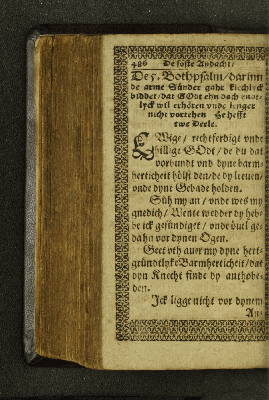 486 De söste Andacht/
De 5. Bothpsalm/ darinn
de arme Sünder gahr kleghlyck
biddet/ dat GOtt ehn doch endt-
lyck wil erhören vnde lenger
nicht vortehen He hefft
twe Deele.
EWige/ rechtferdige vnde
hillige GOdt/ de du dat
vorbundt vnd dyne barm-
herticheit höllst den/ de dy leuen/
vnde dyne Gebade holden.
Süh my an/ vnde wes my
gnedich/ Wente wedder dy heb-
be ick gesündiget/ vnde öuel ge-
dahn vor dynen Ogen.
Geet vth auer my dyne hert-
gründtlyke Barmherticheit/ dat
dyn Knecht finde dy anthobe-
den.
Ick ligge nicht vor dynem
An-